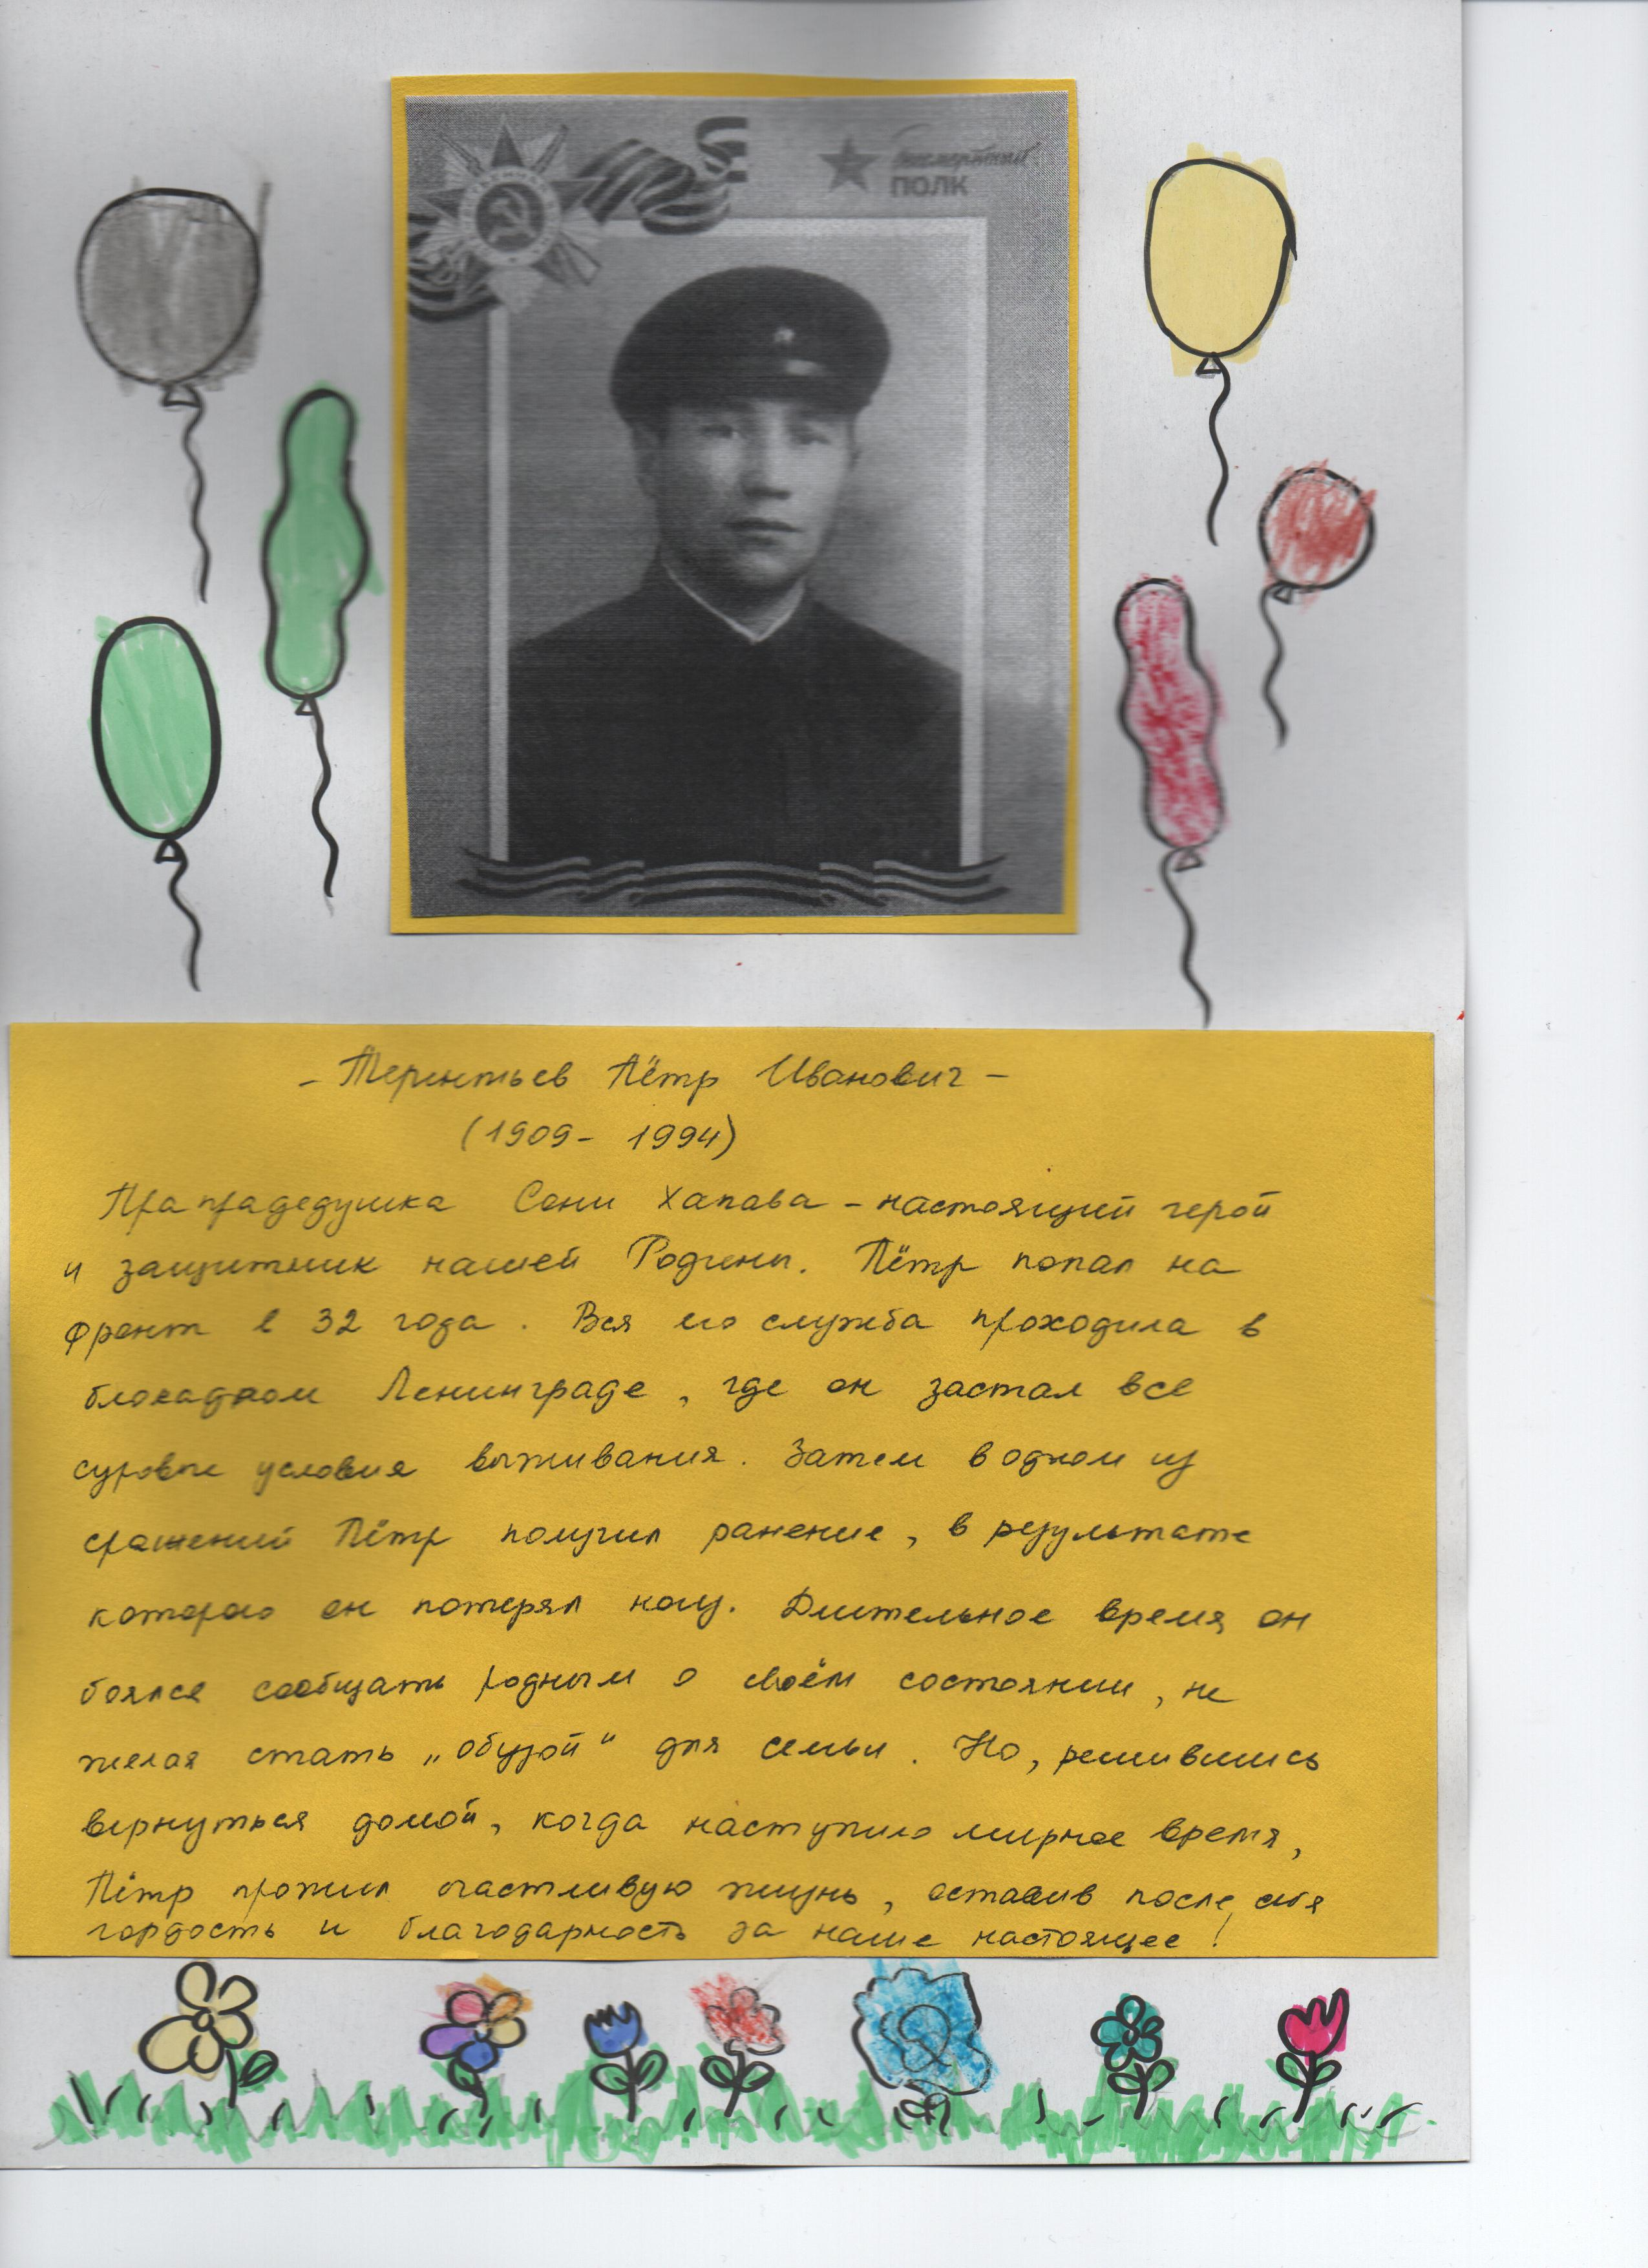 Бессмертный
ПОЛК
- Терентьев Пётр Иванович -
(1909 - 1994)
Прапрадедушка Сони Хапава - настоящий герой
и защитник нашей Родины. Пётр попал на
фронт в 32 года. Вся его служба проходила в
блокадном Ленинграде, где он застал все
суровые условия выживания. Затем в одном из
сражений Пётр получил ранение, в результате
которого он потерял ногу. Длительное время он
боялся сообщать родным о своём состоянии, не
желая стать „обузой“ для семьи. Но, решившись
вернуться домой, когда наступило мирное время,
Пётр прожил счастливую жизнь, оставив после себя
гордость и благодарность за наше настоящее!